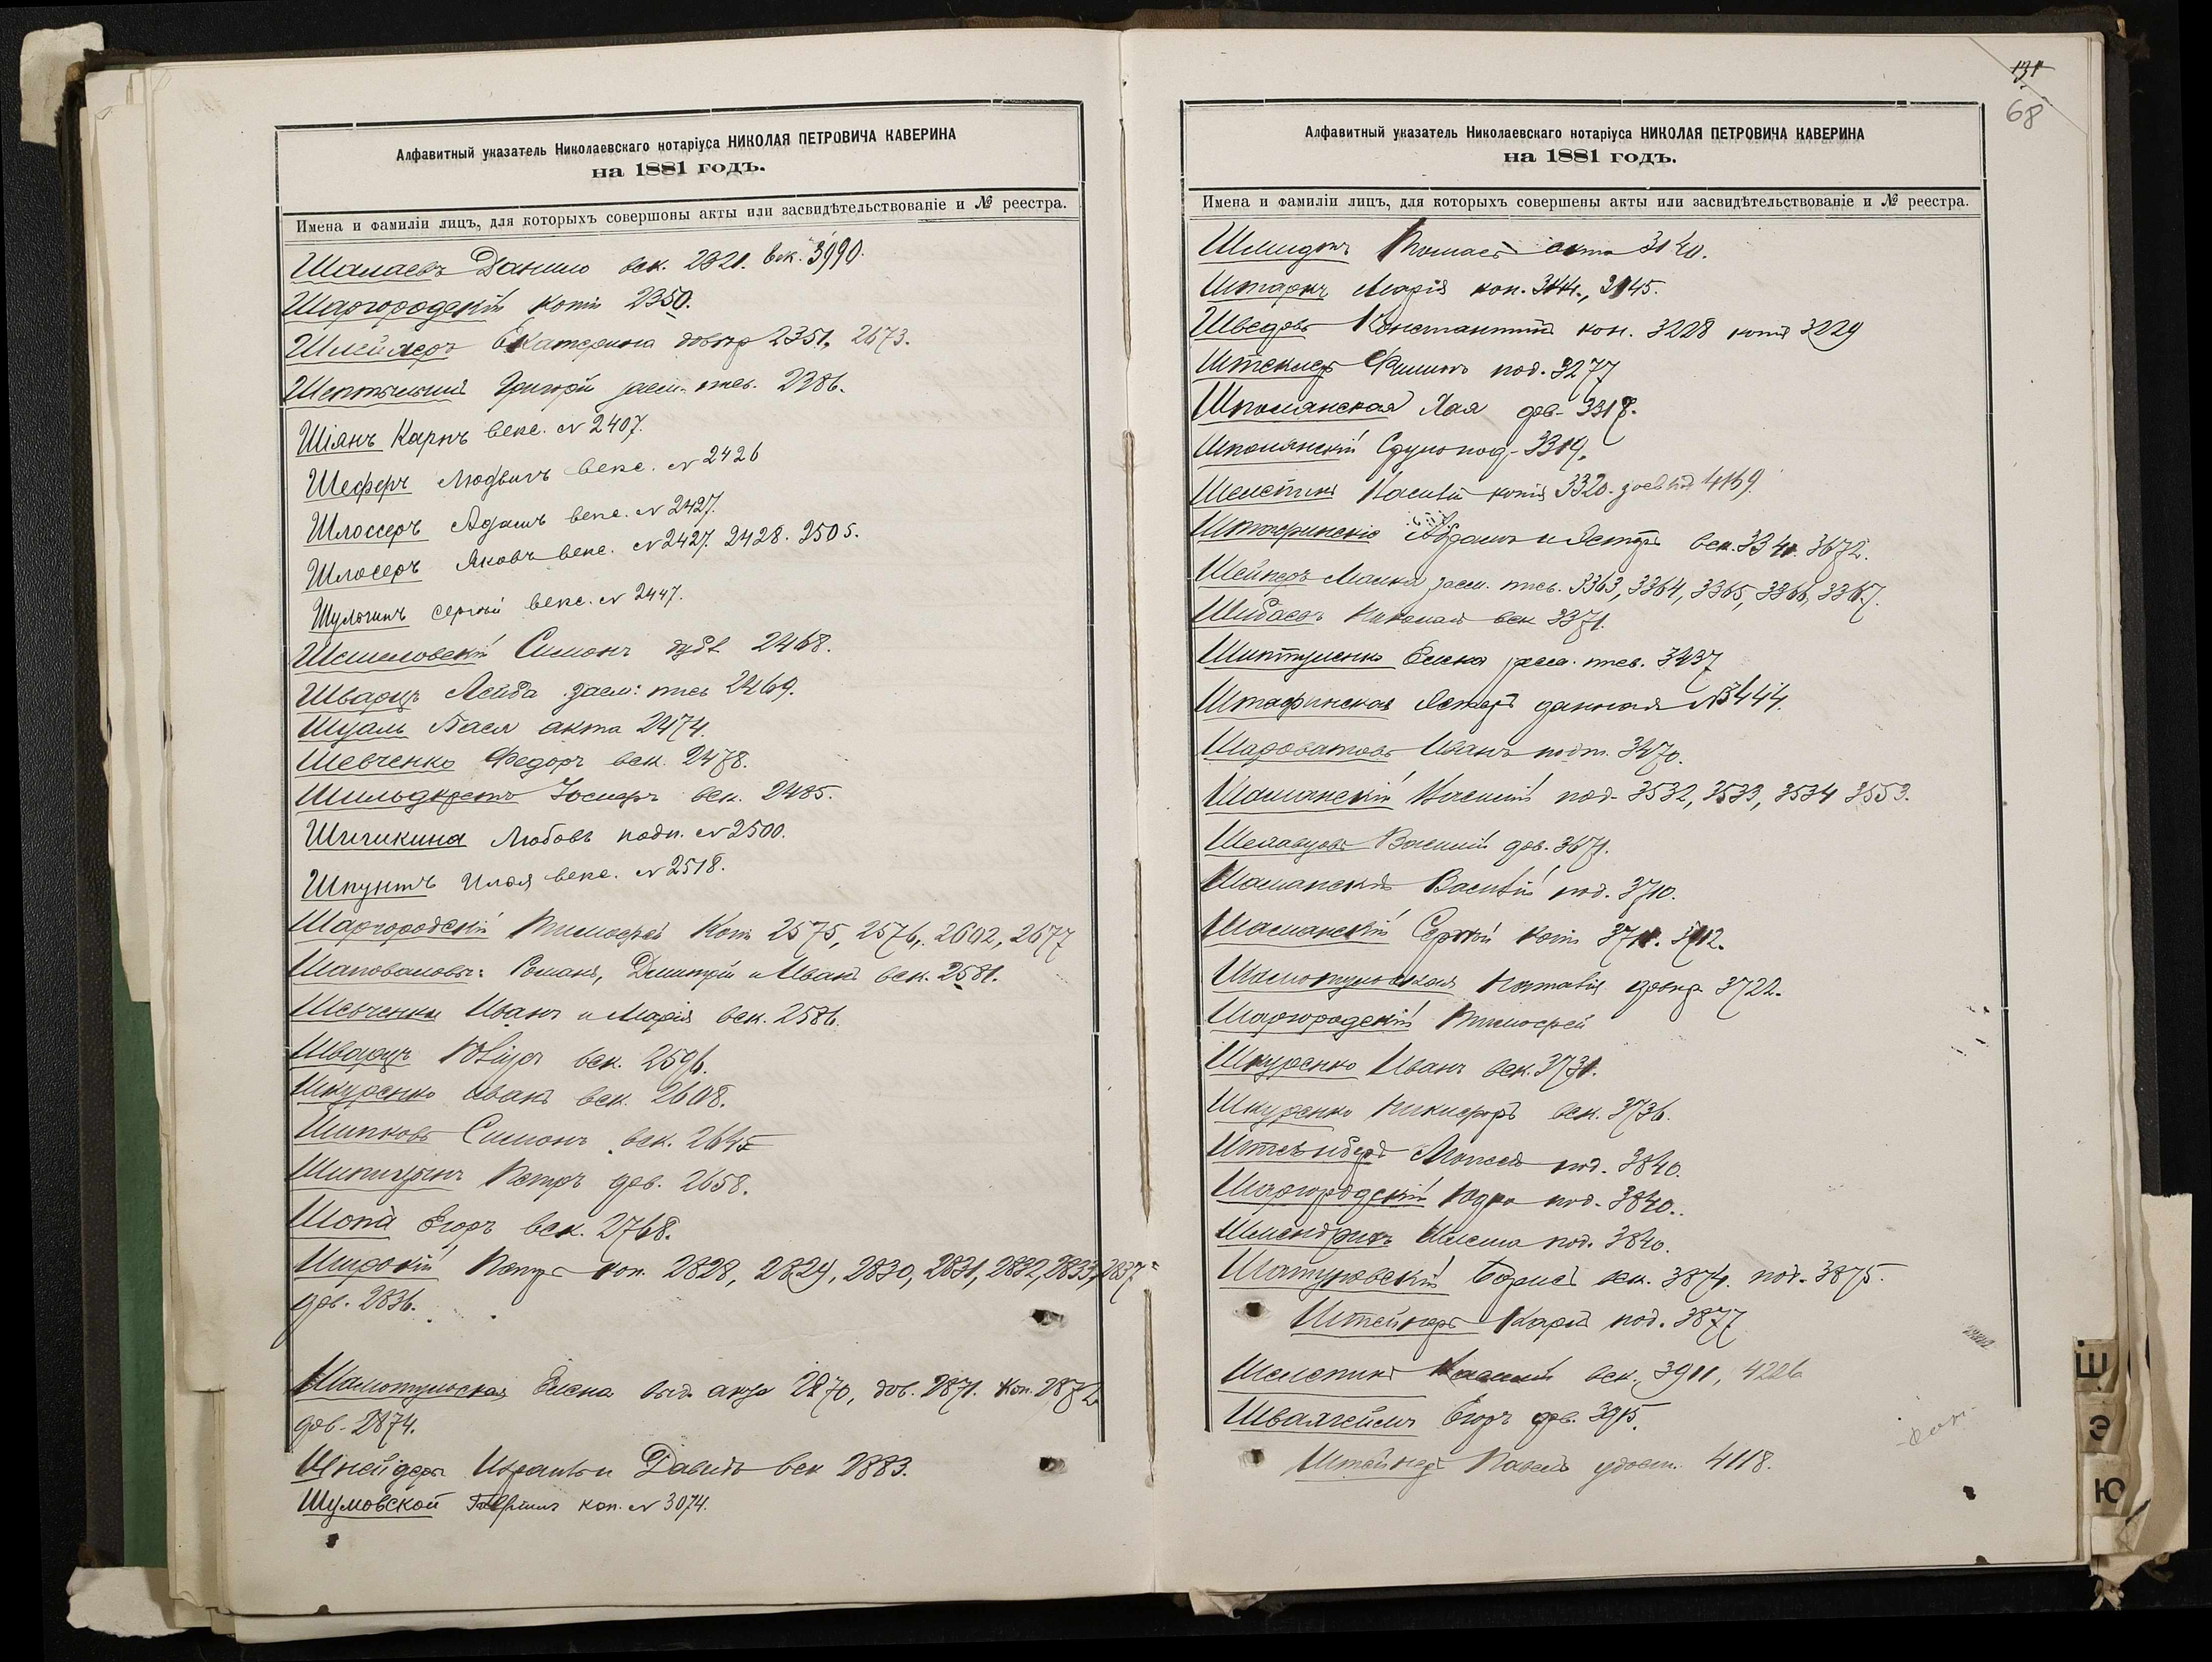 Алфавитный указатель Николаевскаго нотаріуса НИКОЛАЯ ПЕТРОВИЧА КАВЕРИНА
на 1881 годъ.
Имена и фамиліи лицъ, для которыхъ совершоны акты или засвидѣтельствованіе и № реестра.
Шалаевъ Данило век. 2321. век. 3990.
Шаргородскій копія 2350.
Екатерина 2351, 2673.
Григорій заем. пис. 2386.
Шіянъ Карпъ векс. № 2407.
Шеферъ Людвигъ векс. № 2426
Шлоссеръ Адамъ векс. № 2427.
Шлосеръ Яковъ векс. № 2427. 2428. 2505.
Шульгинъ Сергѣй векс. № 2447.
Симонъ 2468.
Шварцъ Лейба заем: пис 2469.
акта 2474.
Шевченко Федоръ век. 2478.
Шильдкретъ Іосифъ век. 2485.
Шишкина Любовь подп. № 2500.
Шпунтъ векс. № 2518.
Шаргородскій Тимофей Копія 2575, 2576, 2602, 2677
Шаповаловы: Романъ, Дмитрій и Иванъ век. 2581.
Шевченки Иванъ и Марія век. 2586.
Шварцъ век. 2596.
Шкуренко Иванъ век. 2608.
Шипковъ Симонъ век. 2645
Петръ дов. 2658.
Шопа̀ Егоръ век. 2768.
Широкій Петръ коп. 2828, 2829, 2830, 2831, 2832, 2833, 2837
дов. 2836.
Елена 2870, дов. 2871. Коп. 2872
дов. 2874.
Шнейдеръ Давидъ век 2883.
Шумовской Гавріилъ коп. № 3074.
131
68
Алфавитный указатель Николаевскаго нотаріуса НИКОЛАЯ ПЕТРОВИЧА КАВЕРИНА
на 1881 годъ.
Имена и фамиліи лицъ, для которыхъ совершены акты или засвидѣтельствованіе и № реестра.
Шмидтъ Томасъ акта 3140.
Штаркъ Марія коп. 3144., 3145.
Шведовъ Константинъ коп. 3228 копія 3229
Филипъ под. 3277
Шполянская Хая дов. 3318.
Шполянскій под. 3319.
Шелепинъ Василій копія 3320. 4169.
Абрамъ и Естеръ век. 3341. 3672.
Малка заем. пис. 3363, 3364, 3365, 3366, 3367.
Шибаевъ Николай век 3371.
Елена заем. пис. 3437
Штафинская Естеръ данная № 3444.
Шароватовъ Иванъ подп. 3470.
Шаманскій Василій под. 3532, 3533, 3534 3553.
Василій дов. 3671.
Шаманскій Василій под. 3710.
Шаманскій Сергѣй копія 3711. 3712.
Наталія 3722.
Шаргородскій Тимофей
Шкуренко Иванъ век. 3731.
Шкуренко Никифоръ век. 3736.
Штейнбергъ Моисей под. 3840.
Шаргородскій Юдко под. 3840.
под. 3840.
Шатуновскій Борисъ век. 3874. под. 3875.
Штейнеръ Карлъ под. 3877
Шелепинъ Василій век. 3911, 4226
Швалгеймъ Егоръ дов. 3915.
Штейнеръ Павелъ удост. 4118.
Ш
Э
Ю